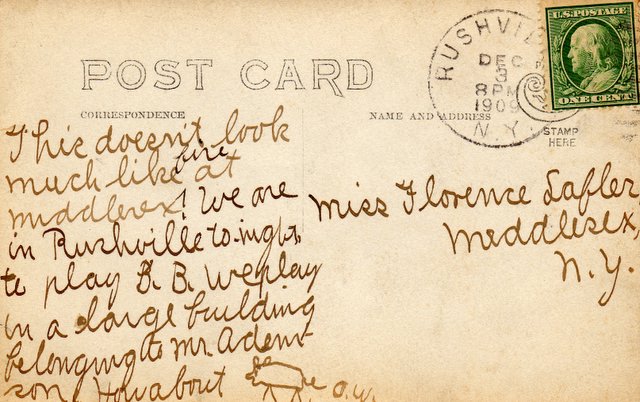 POST CARD
CORRESPONDENCE
NAME AND ADDRESS
RUSHVIL
DEC
3
8 PM
1909
N.Y.
U.S. POSTAGE
ONE CENT
STAMP
HERE
This doesn't look
much like at
fire
middlesex! We are
in Rushville to-night
to play B. B. We play
in a large building
belonging to Mr. Adem-
son. How about O.W.
Miss Florence Lafler
Middlesex,
N.Y.